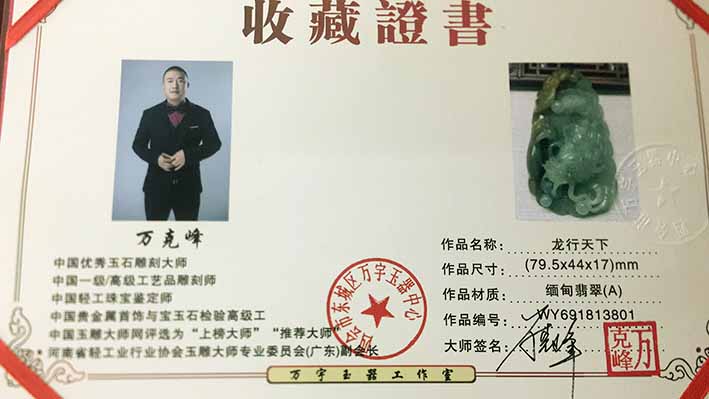 收藏證書
万克峰
中国优秀玉石雕刻大师
中国一级/高级工艺品雕刻师
中国轻工珠宝鉴定师
中国贵金属首饰与宝玉石检验高级工
中国玉雕大师网评选为“上榜大师”“推荐大师”
河南省轻工业行业协会玉雕大师专业委员会(广东)副会长
四会市东城区万字玉器中心
作品名称： 龙行天下
作品尺寸： (79.5x44x17)mm
作品材质： 缅甸翡翠(A)
作品编号： WY691813801
大师签名：
万克峰
万字玉器工作室